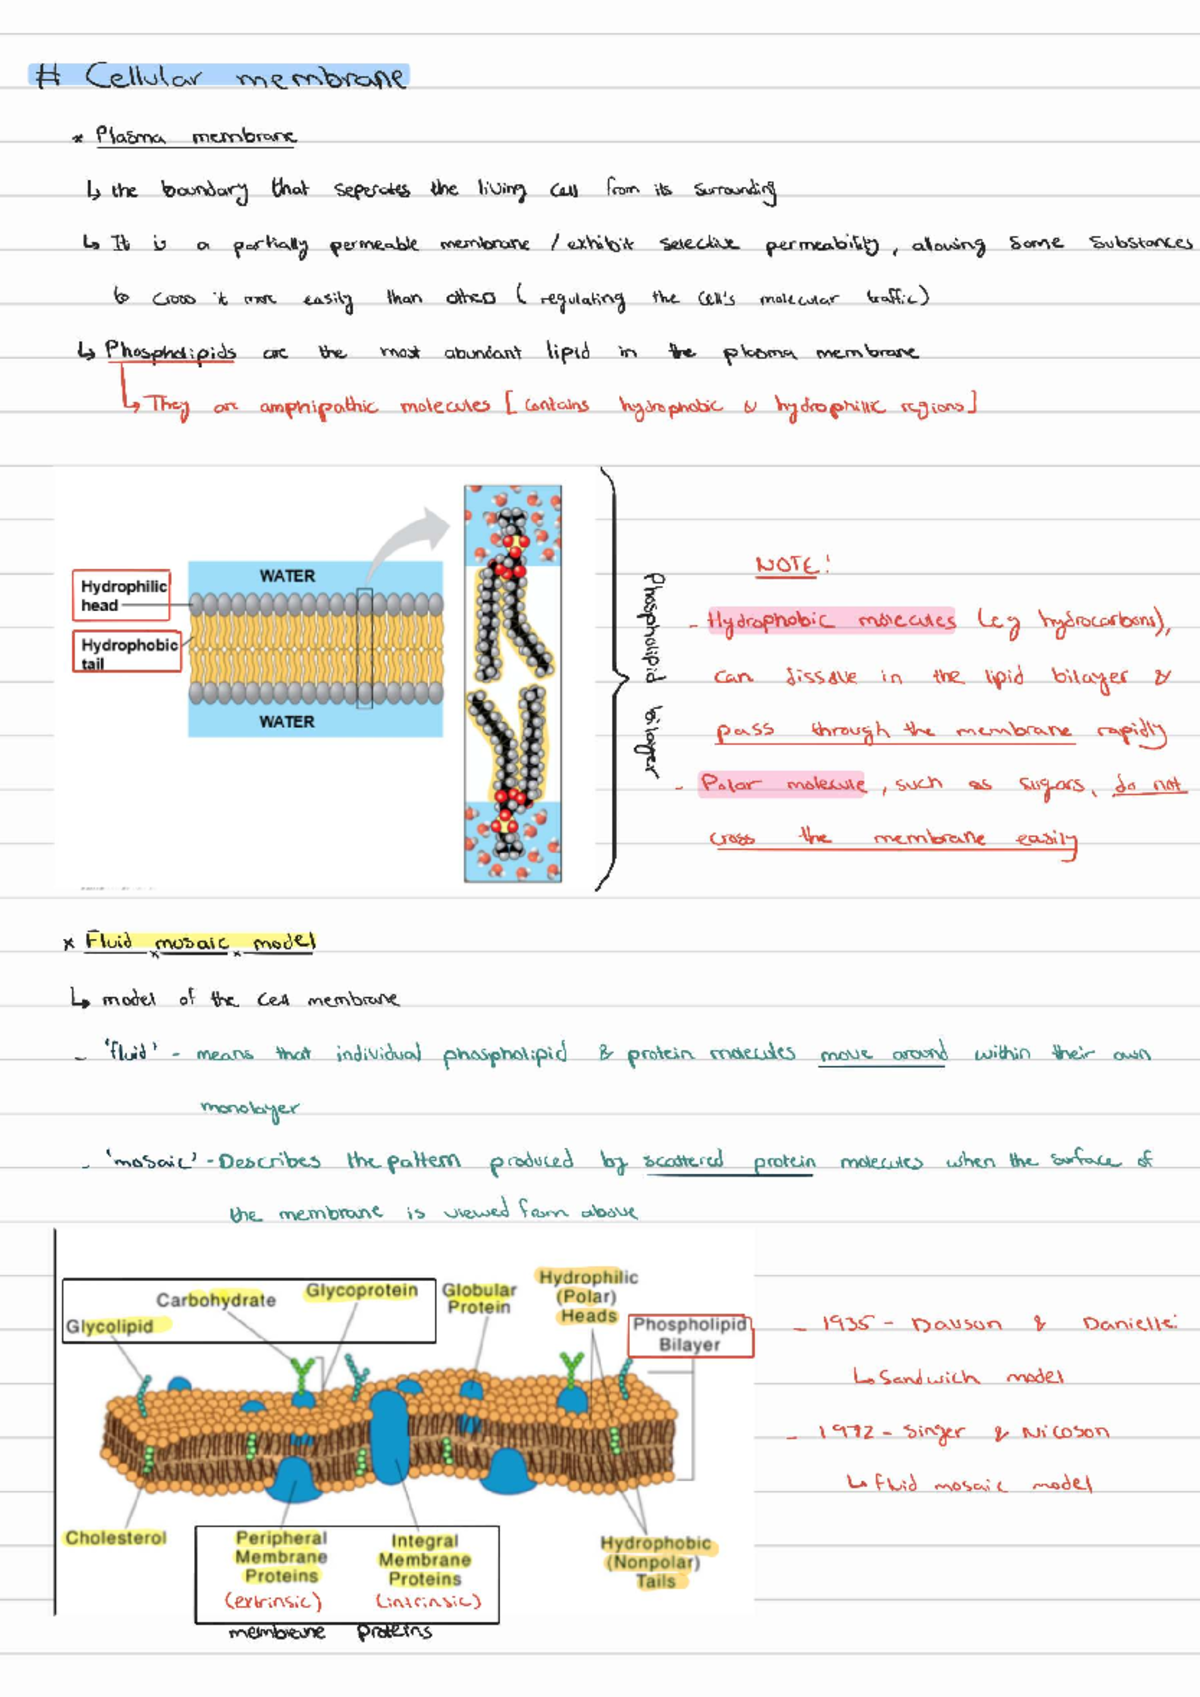 # Cellular membrane
* Plasma membrane
↳ the boundary that seperates the living cell from its surrounding
↳ It is a partially permeable membrane / exhibit selective permeability, allowing some substances
to cross it more easily than others (regulating the cell's molecular traffic)
↳ Phospholipids are the most abundant lipid in the plasma membrane
↳ They are amphipathic molecules [contains hydrophobic & hydrophilic regions]
Hydrophilic
head
Hydrophobic
tail
WATER
WATER
Phospholipid bilayer
NOTE!
- Hydrophobic molecules (eg hydrocarbons),
can dissolve in the lipid bilayer &
pass through the membrane rapidly
- Polar molecule, such as sugars, do not
cross the membrane easily
* Fluid mosaic model
↳ model of the cell membrane
- 'fluid' - means that individual phospholipid & protein molecules move around within their own
monolayer
- 'mosaic' - Describes the pattern produced by scattered protein molecules when the surface of
the membrane is viewed from above
Glycolipid
Carbohydrate
Glycoprotein
Globular
Protein
Hydrophilic
(Polar)
Heads
Phospholipid
Bilayer
Cholesterol
Peripheral
Membrane
Proteins
(extrinsic)
Integral
Membrane
Proteins
(intrinsic)
membrane proteins
Hydrophobic
(Nonpolar)
Tails
- 1935 - Davson & Danielli:
↳ Sandwich model
- 1972 - Singer & Nicoson
↳ fluid mosaic model